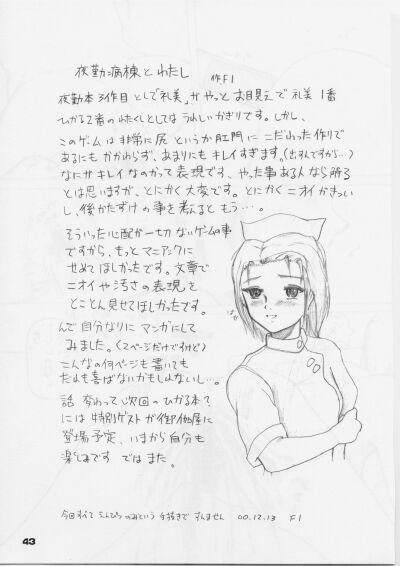 夜勤病棟とわたし
作.F1
夜勤本3作目としで「礼美」がやっとお目見えで礼美1番
ひかる2番のわたくしとしてはうれしいかぎりです。しかし、
このゲームは非常に尻というか肛門にこだわった作りで
あるにもかかわらず、あまりにもキレイすぎます。(出すんですから…)
なにがキレイなのかって表現です、やった事ある人なら解る
とは思いますが、とにかく大変です。とにかくニオイがきつい
し、後かたずけの事を考えるともう…。
そういった心配が一切ないゲームの事
ですから、もっとマニアックに
せめてほしかったです。文章で
ニオイや汚さの表現を
とことん見せてほしかったです。
んで自分なりにマンガにして
みました。(2ページだけですけど)
こんなの何ページも書いても
だれも喜ばないかもしんないし…。
話変わって次回のひかる本で
には特別ゲストが御伽屋に
登場予定、いまから自分も
楽しみです ではまた。
今回すべてえんぴつのみという手抜きですんません 00.12.13 F1
43